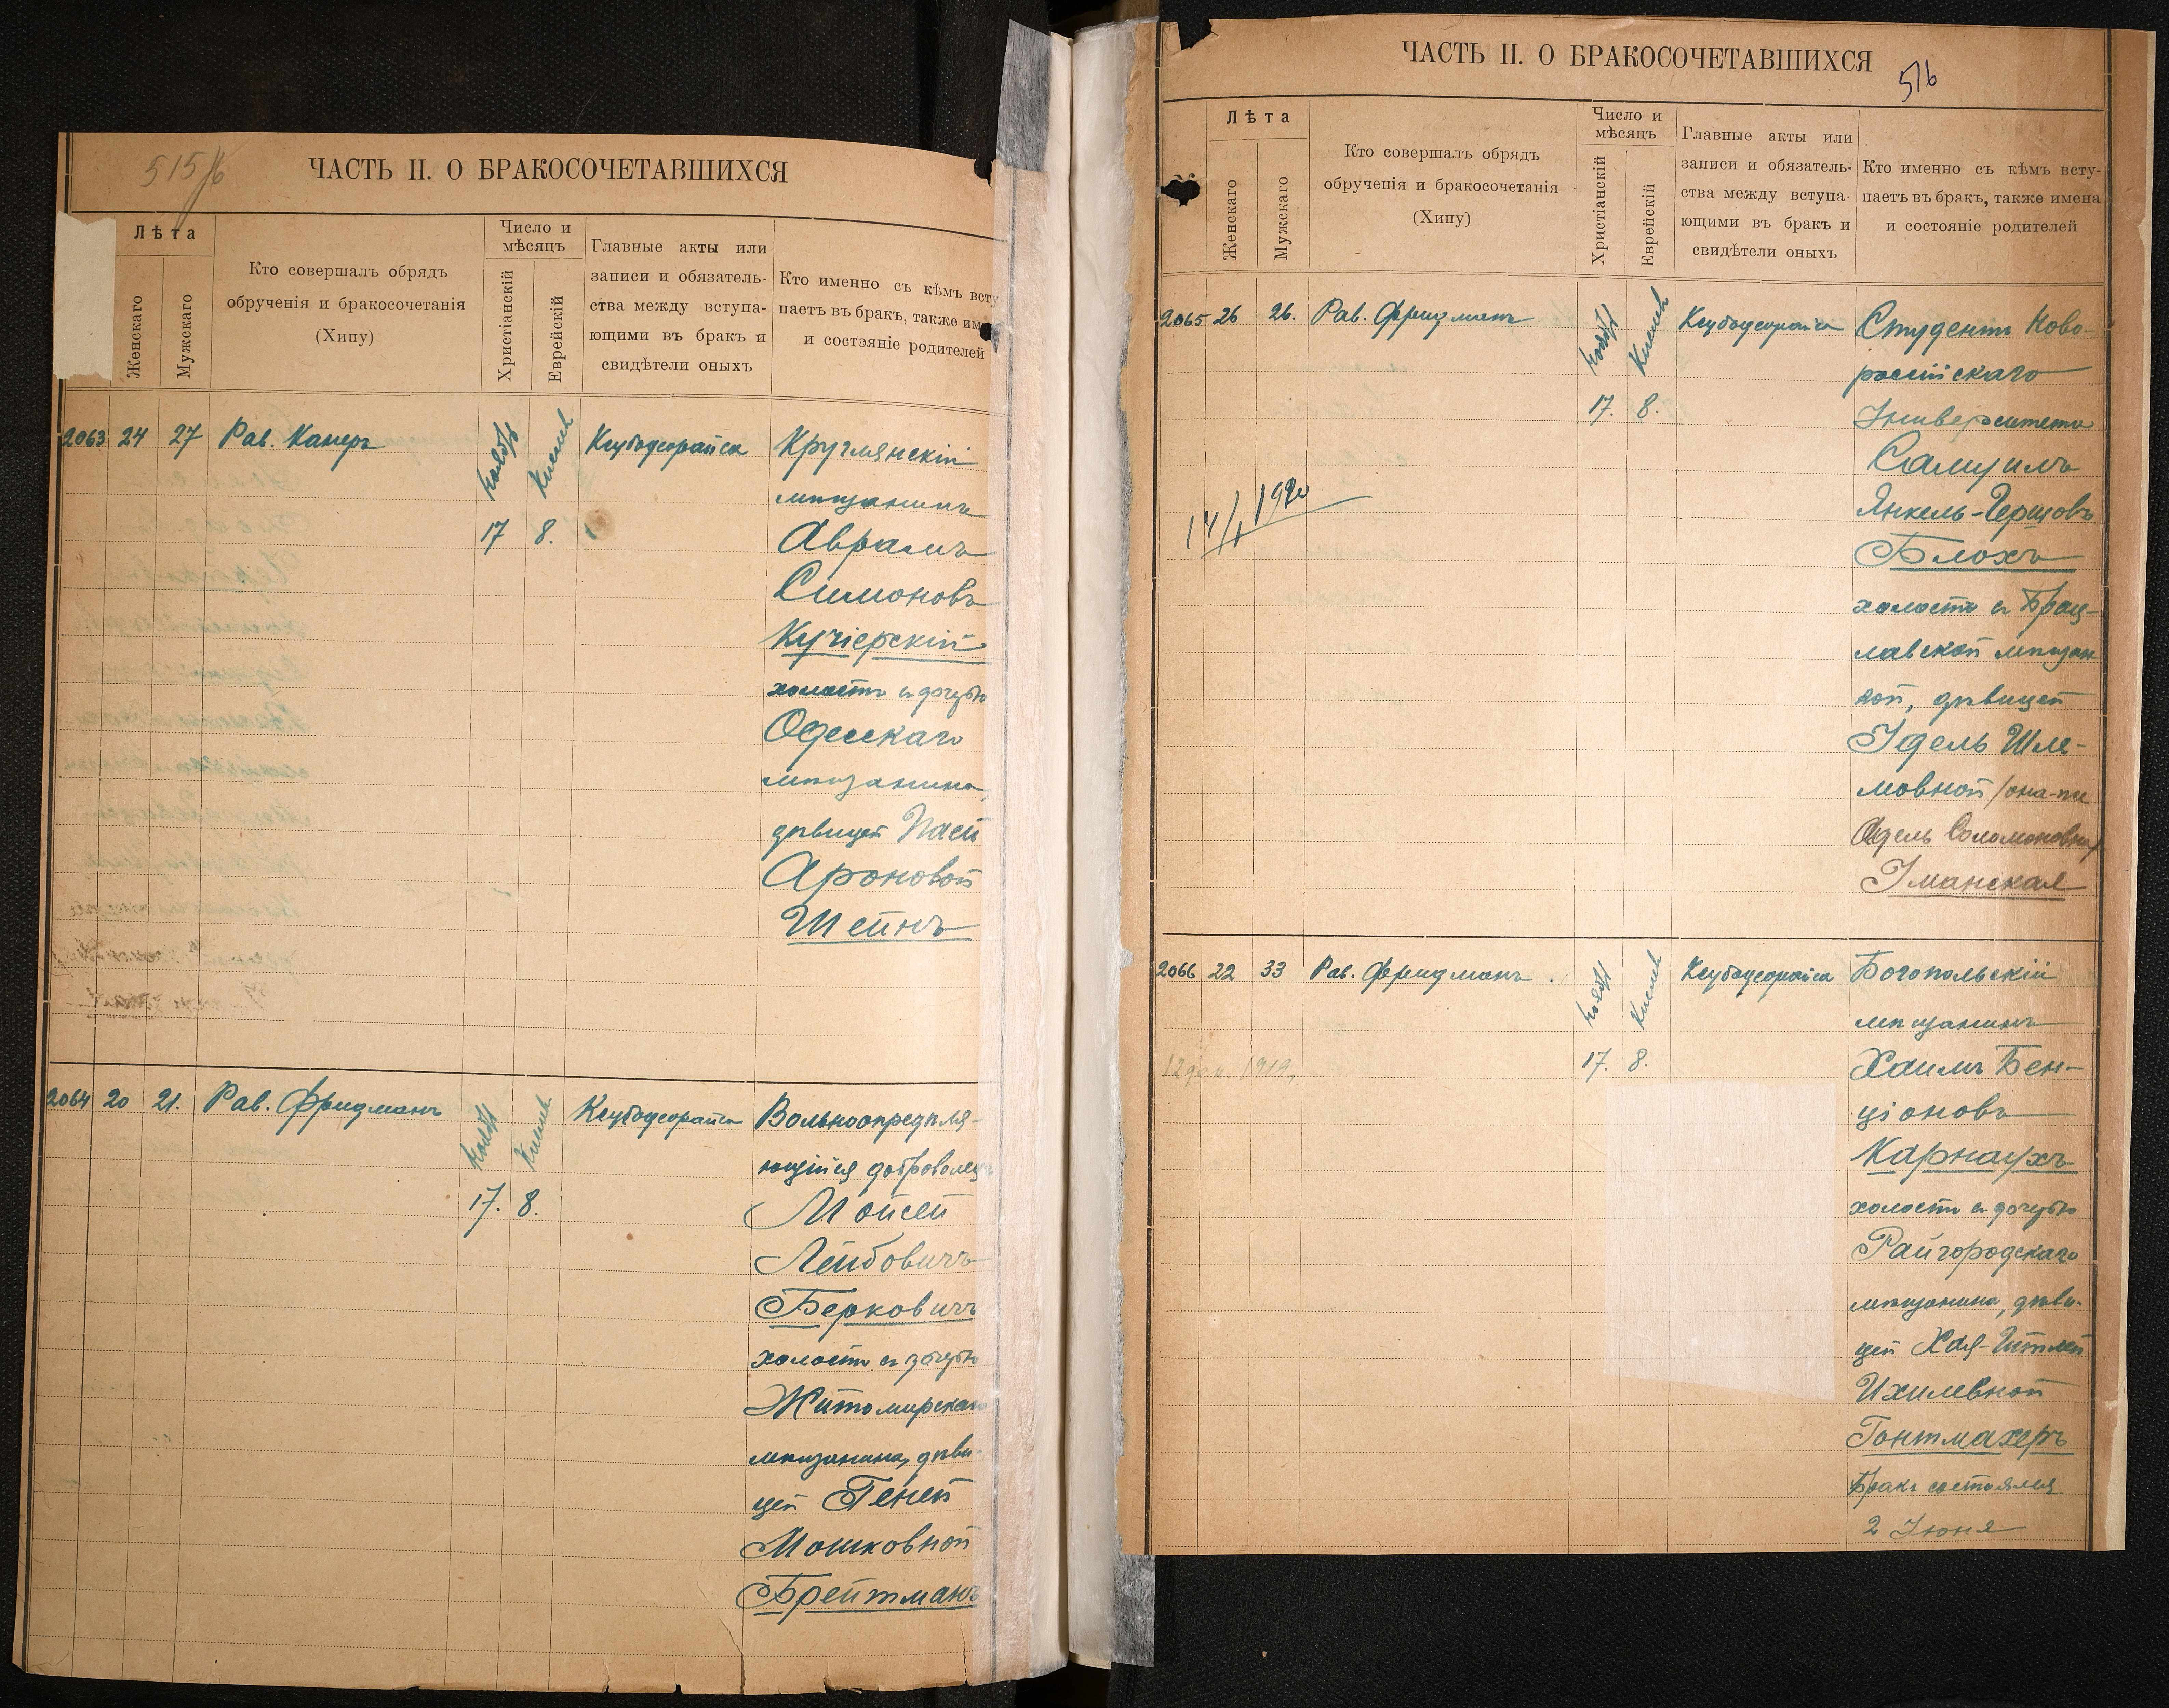 515
ЧАСТЬ II. О БРАКОСОЧЕТАВШИХСЯ
Лѣта
Женскаго
Мужскаго
Кто совершалъ обрядъ
обрученія и бракосочетанія
(Хипу)
Число и
мѣсяцъ
Христіанскій
Еврейскій
Главные акты или
записи и обязатель-
ства между вступа-
ющими въ бракъ и
свидѣтели оныхъ
Кто именно съ кѣмъ всту
паетъ въ бракъ, также им
и состояніе родителей
2063 24 27 Рав. Канеръ
Ноябрь Кислев
17 8.
Ксубодеорайса
Круглянскій
мѣщанинъ
Аврамъ
Симоновъ
Кучіерскій
холостъ съ дочерью
Одесскаго
мѣщанина,
дѣвицей Пасей
Ароновой
Шейнъ
2064 20 21. Рав. Фридманъ
Ноябрь Кислев
17. 8.
Ксубодеорайса
Вольноопредѣля-
ющійся доброволецъ
Мойсей
Лейбовичъ
Берковичъ
холостъ съ дочерью
Житомирскаго
мѣщанина, дѣви-
цей Геней
Мошковной
Брейтманъ
ЧАСТЬ II. О БРАКОСОЧЕТАВШИХСЯ
516
Лѣта
Женскаго
Мужскаго
Кто совершалъ обрядъ
обрученія и бракосочетанія
(Хипу)
Число и
мѣсяцъ
Христіанскій
Еврейскій
Главные акты или
записи и обязатель-
ства между вступа-
ющими въ бракъ и
свидѣтели оныхъ
Кто именно съ кѣмъ всту-
паетъ въ бракъ, также имена
и состояніе родителей
2065 26 26. Рав. Фридманъ
Ноябрь Кислев
17. 8.
Ксубодеорайса
14/I 1920
Студентъ Ново-
россійскаго
Университета
Самуилъ
Янкель-Герцовъ
Блохъ
холостъ съ Брац-
лавской мѣщан
кой, дѣвицей
Идель Шле-
мовной /она-же
Адель Соломоновна/
Уманская
2066 22 33 Рав. Фридманъ.
Ноябрь Кислев
17. 8.
Ксубодеорайса
12 дек. 1919,
Богопольскій
мѣщанинъ
Хаимъ Бен-
ціоновъ
Карнаухъ
холостъ съ дочерью
Райгородскаго
мѣщанина, дѣви-
цей Хая-Итлей
Ихилевной
Гонтмахеръ
Бракъ состоялся
2 Іюня